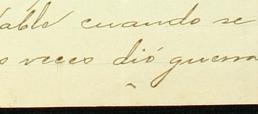 able cuando se
s veces dió guerra